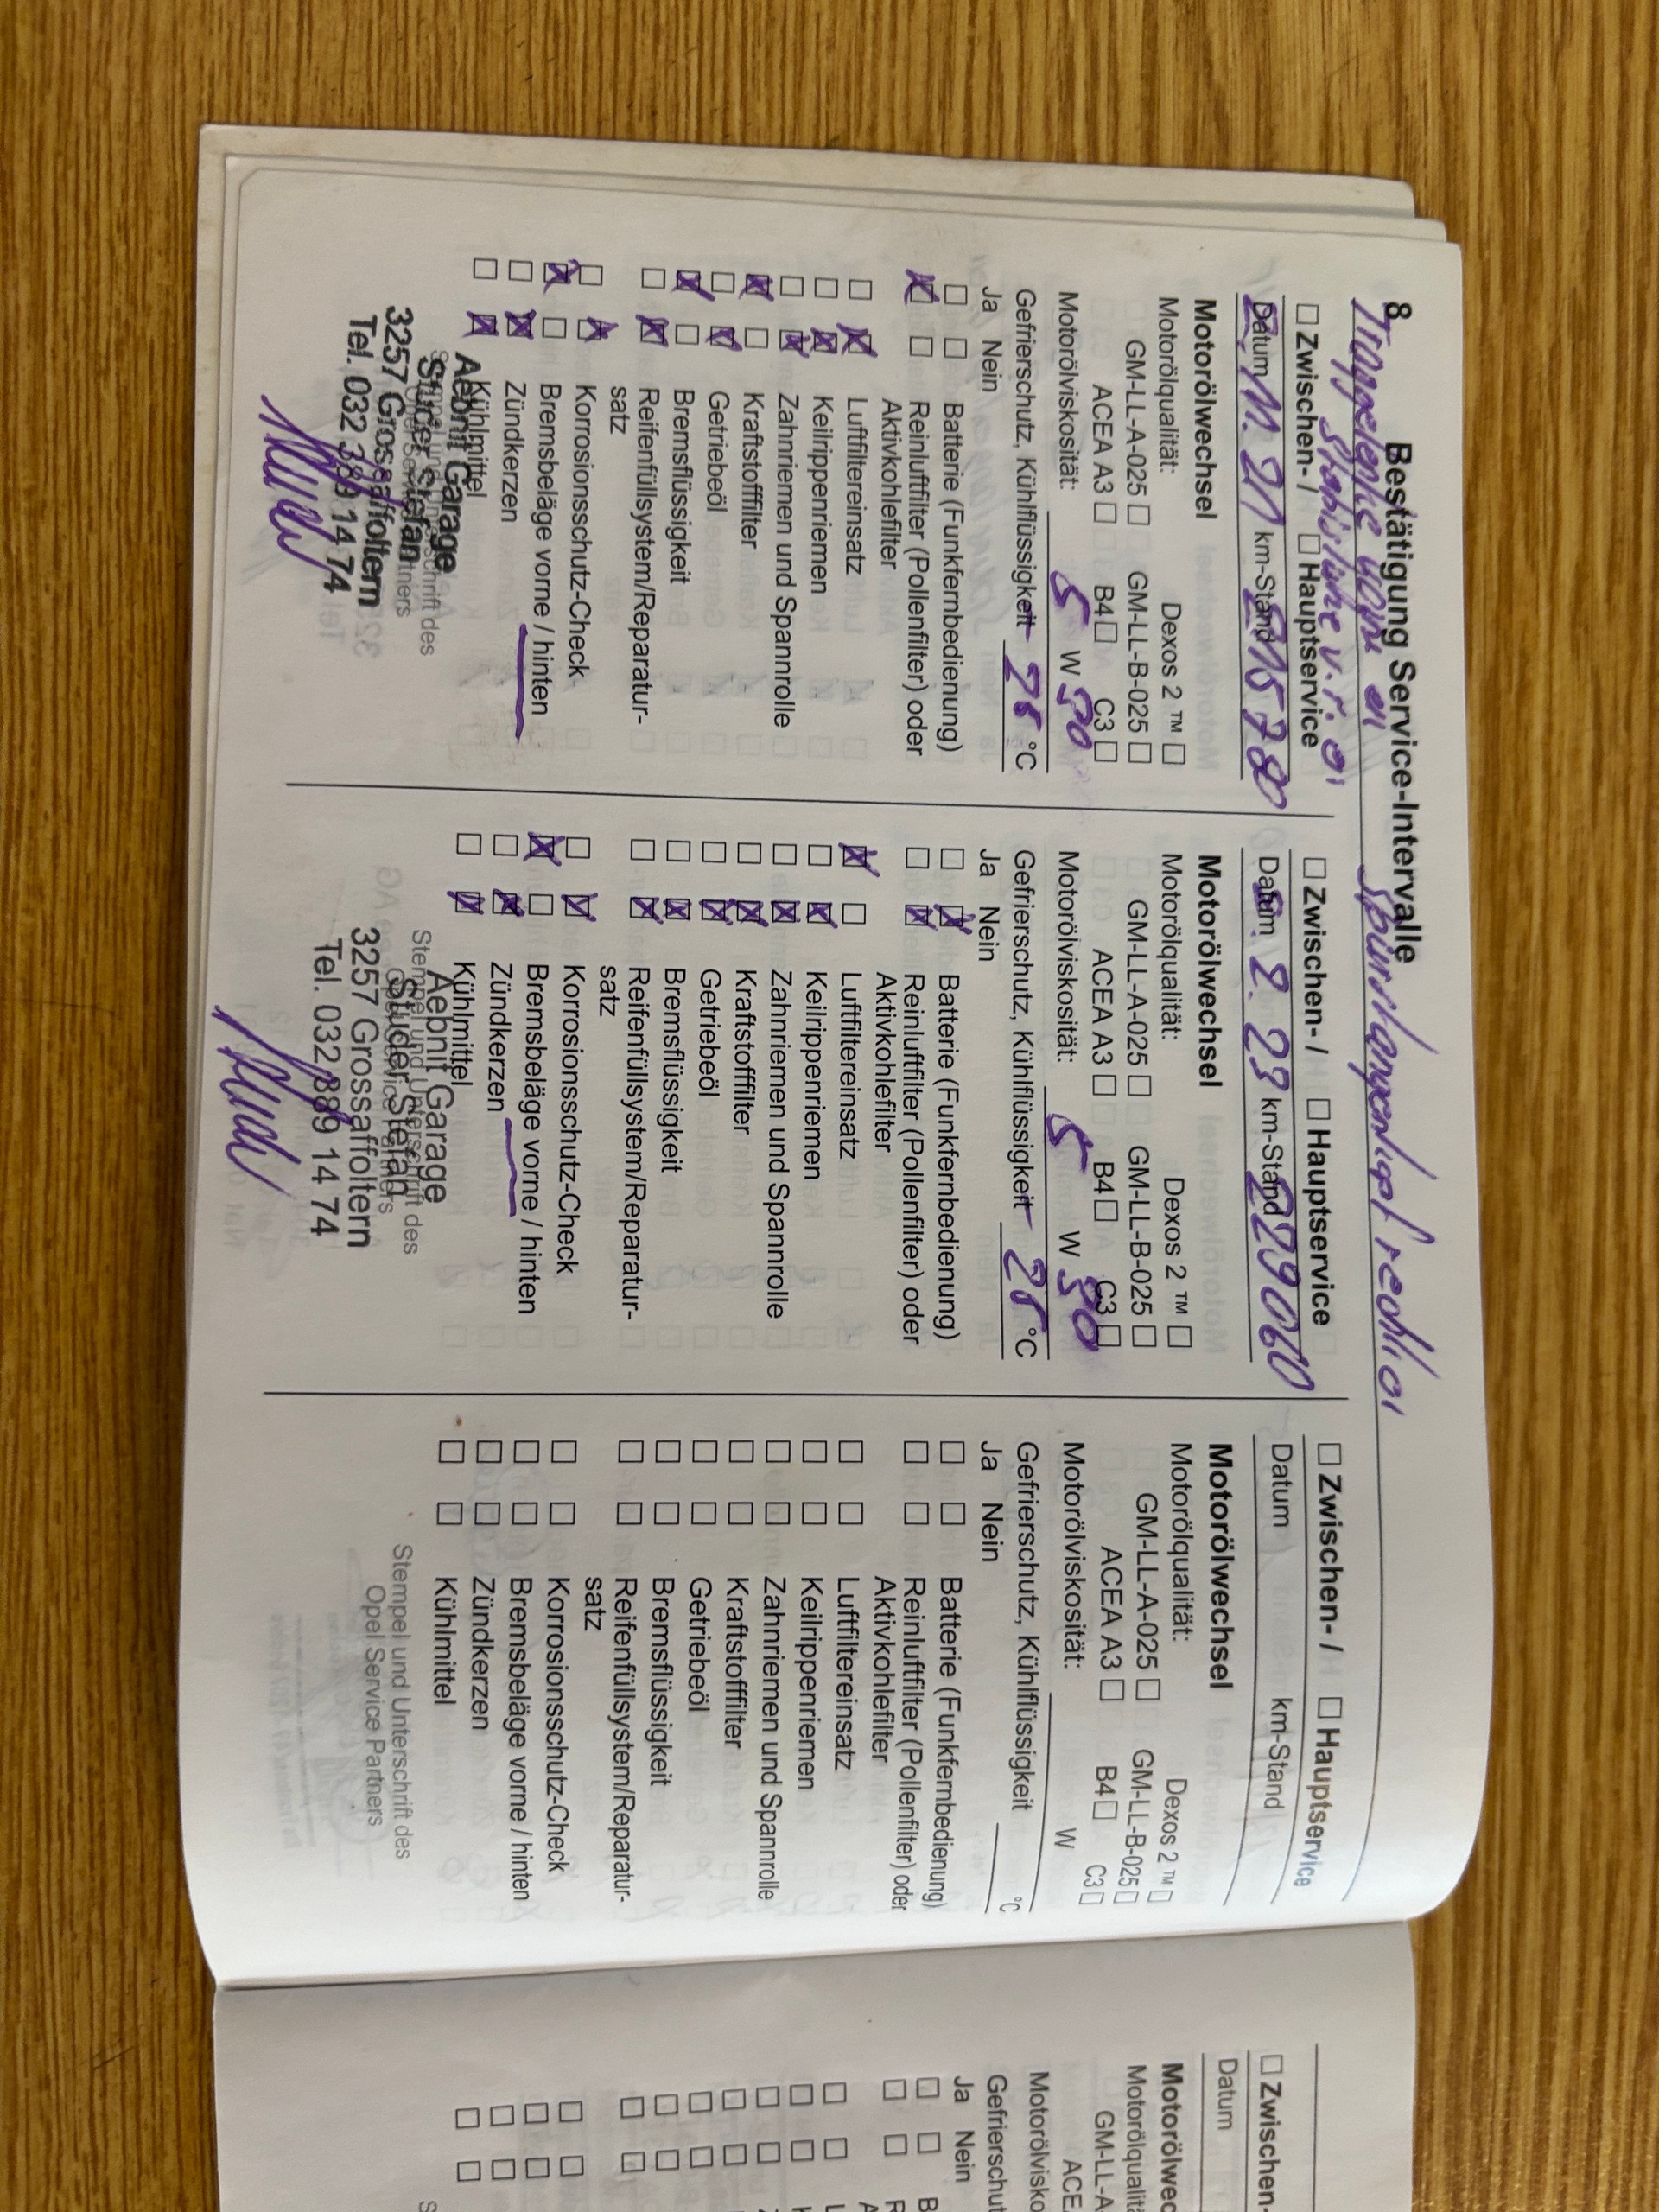 8 Bestätigung Service-Intervalle
Traggelenke vorn
Spurstangenkopf rechts
☐ Zwischen- / ☐ Hauptservice
Datum 11. 21 km-Stand 215780
Motorölwechsel
Motorölqualität: Dexos 2 ™ ☐
GM-LL-A-025 ☐ GM-LL-B-025 ☐
ACEA A3 ☐ B4 ☐ C3 ☐
Motorölviskosität: 5 W 50
Gefrierschutz, Kühlflüssigkeit - 28 °C
Ja Nein
☐ ☐ Batterie (Funkfernbedienung)
☒ ☐ Reinluftfilter (Pollenfilter) oder
Aktivkohlefilter
☐ ☒ Luftfiltereinsatz
☐ ☒ Keilrippenriemen
☐ ☒ Zahnriemen und Spannrolle
☒ ☐ Kraftstofffilter
☐ ☒ Getriebeöl
☒ ☐ Bremsflüssigkeit
☐ ☒ Reifenfüllsystem/Reparatur-
satz
☐ ☒ Korrosionsschutz-Check
☒ ☐ Bremsbeläge vorne / hinten
☐ ☒ Zündkerzen
☐ ☒ Kühlmittel
Aebnit Garage
Studer Stefan
3257 Grossaffoltern
Tel. 032 389 14 74
☐ Zwischen- / ☐ Hauptservice
Datum 2. 23 km-Stand 229060
Motorölwechsel
Motorölqualität: Dexos 2 ™ ☐
GM-LL-A-025 ☐ GM-LL-B-025 ☐
ACEA A3 ☐ B4 ☐ C3 ☐
Motorölviskosität: 5 W 50
Gefrierschutz, Kühlflüssigkeit - 28 °C
Ja Nein
☐ ☒ Batterie (Funkfernbedienung)
☐ ☒ Reinluftfilter (Pollenfilter) oder
Aktivkohlefilter
☒ ☐ Luftfiltereinsatz
☐ ☒ Keilrippenriemen
☐ ☒ Zahnriemen und Spannrolle
☐ ☒ Kraftstofffilter
☐ ☒ Getriebeöl
☐ ☒ Bremsflüssigkeit
☐ ☒ Reifenfüllsystem/Reparatur-
satz
☐ ☒ Korrosionsschutz-Check
☒ ☐ Bremsbeläge vorne / hinten
☐ ☒ Zündkerzen
☐ ☒ Kühlmittel
Stempel und Unterschrift des
Aebnit Garage
Studer Stefan
3257 Grossaffoltern
Tel. 032 389 14 74
☐ Zwischen- / ☐ Hauptservice
Datum km-Stand
Motorölwechsel
Motorölqualität: Dexos 2 ™ ☐
GM-LL-A-025 ☐ GM-LL-B-025 ☐
ACEA A3 ☐ B4 ☐ C3 ☐
Motorölviskosität: W
Gefrierschutz, Kühlflüssigkeit °C
Ja Nein
☐ ☐ Batterie (Funkfernbedienung)
☐ ☐ Reinluftfilter (Pollenfilter) oder
Aktivkohlefilter
☐ ☐ Luftfiltereinsatz
☐ ☐ Keilrippenriemen
☐ ☐ Zahnriemen und Spannrolle
☐ ☐ Kraftstofffilter
☐ ☐ Getriebeöl
☐ ☐ Bremsflüssigkeit
☐ ☐ Reifenfüllsystem/Reparatur-
satz
☐ ☐ Korrosionsschutz-Check
☐ ☐ Bremsbeläge vorne / hinten
☐ ☐ Zündkerzen
☐ ☐ Kühlmittel
Stempel und Unterschrift des
Opel Service Partners
☐ Zwischen-
Datum
Motorölwec
Motorölqualitä
GM-LL-A
ACEA
Motorölvisko
Gefrierschut
Ja Nein